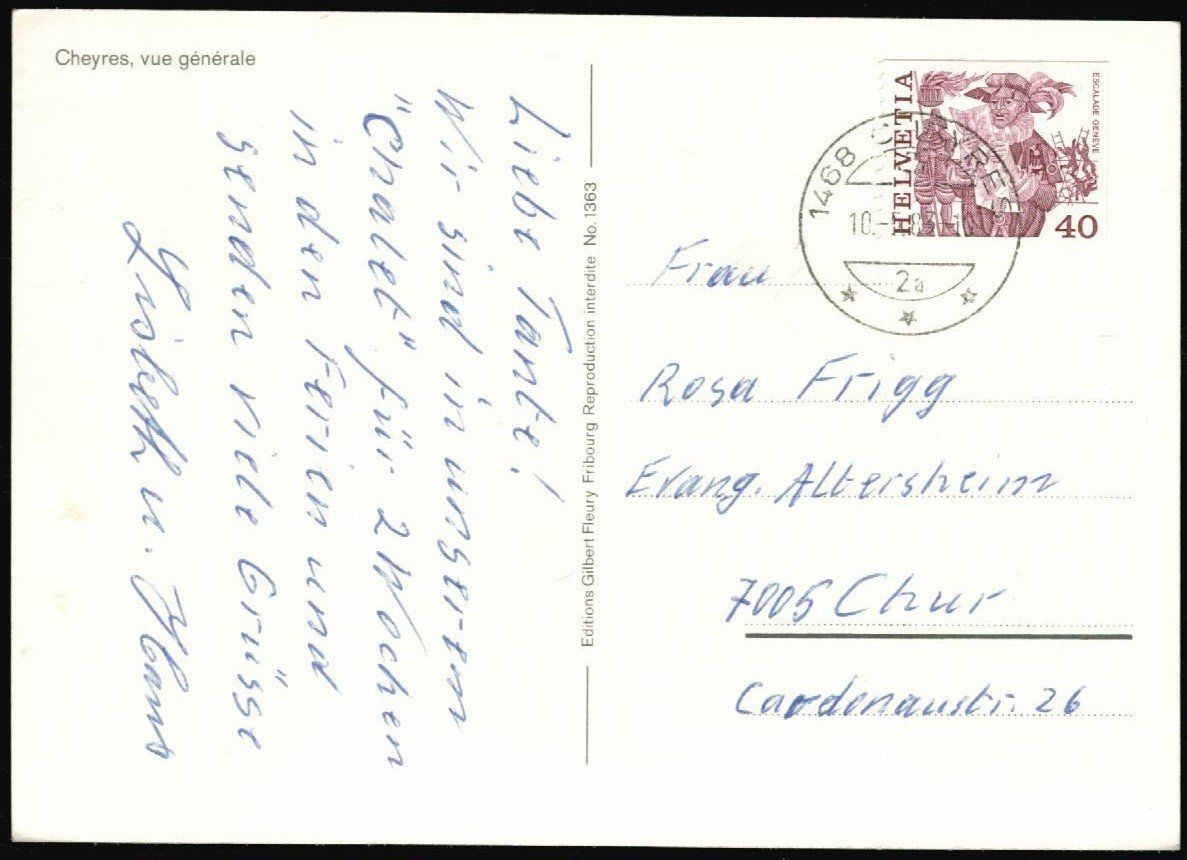 Cheyres, vue générale
Liebe Tante!
Wir sind in unserem
"Chalet" für 2 Wochen
in den Ferien und
senden viele Grüsse
u. Hans
Editions Gilbert Fleury Fribourg Reproduction interdite No. 1363
HELVETIA
ESCALADE GENÈVE
40
1468 CHEYRES
10.
2a
Frau
Rosa Frigg
Evang. Altersheim
7005 Chur
Cadonaustr. 26